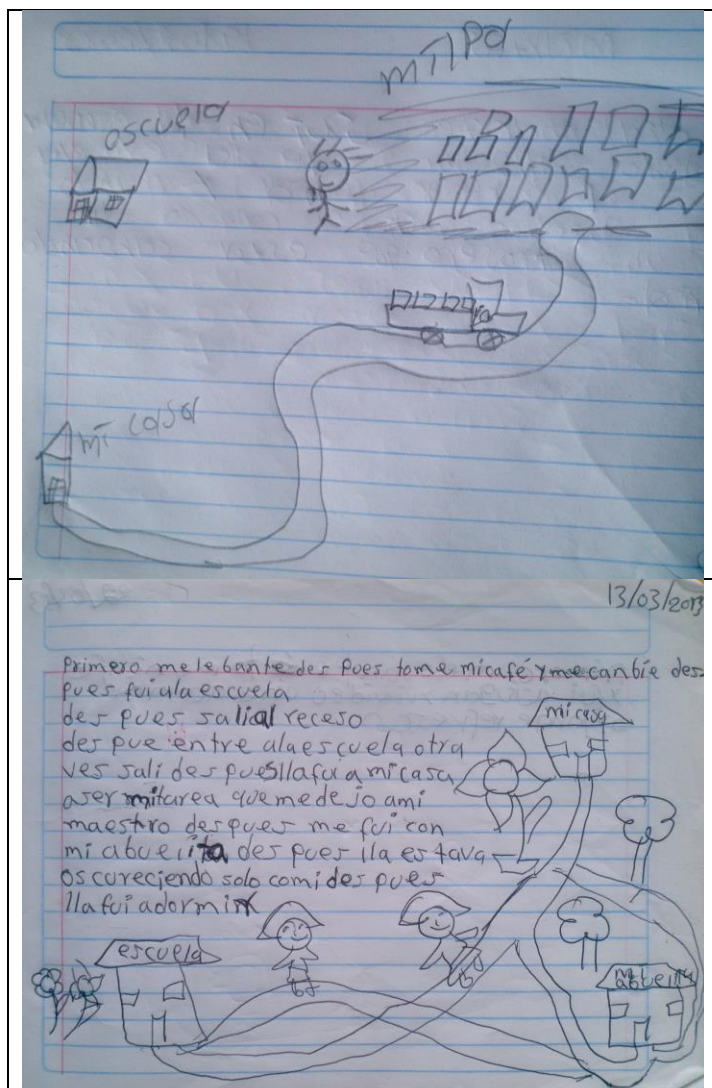 milpa
escuela
mi casa
13/03/2013
Primero me lebante des pues tome mi café y me canbie des-
pues fui ala escuela
des pues sali al receso
des pue entre ala escuela otra
ves sali des pues lla fui a mi casa
aser mi tarea que me dejo a mi
maestro des pues me fui con
mi abuelita des pues lla estava
oscureciendo solo comi des pues
lla fui a dormir
mi casa
escuela
mi abuelita